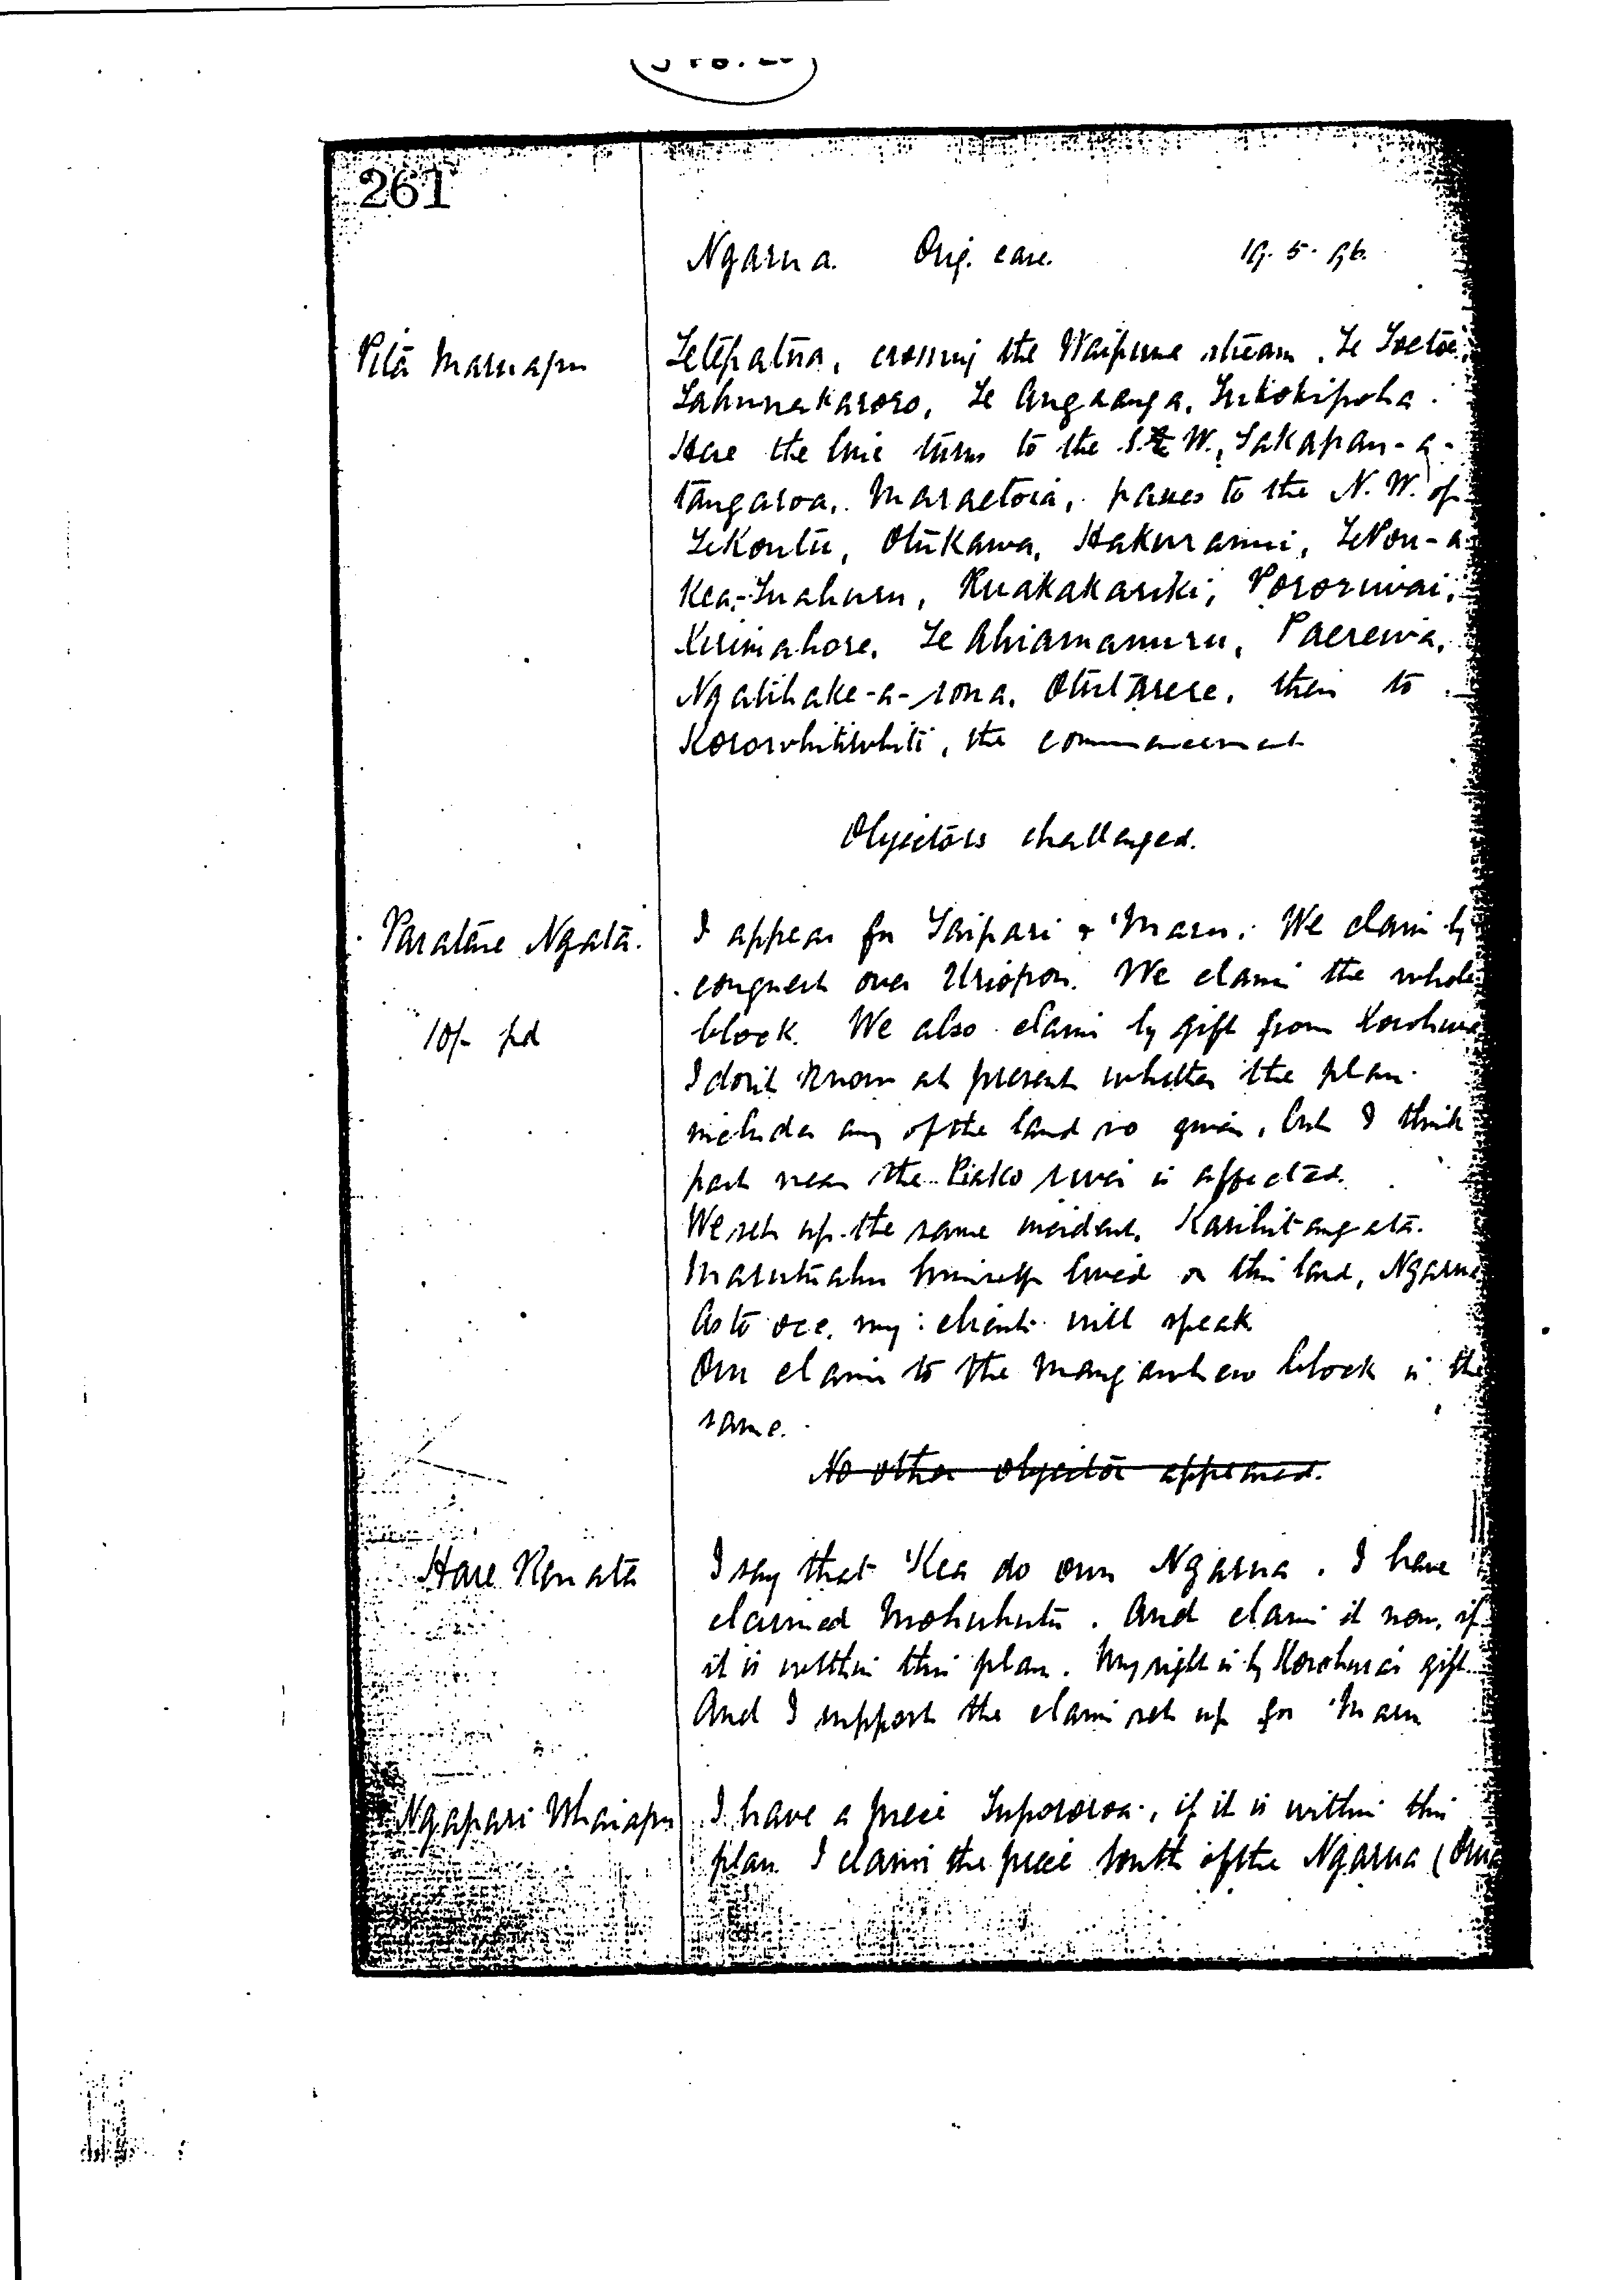 261
Ngarua. Orig. case. 19. 5. 96.
Pita Maruapu
Tetepatua, crossing the Waipuna stream, Te Toetoe,
Tahunakaroro, Te Angaanga, Tukokipoha.
Here the line turns to the S. W., Takapau-a-
tangaroa, Maraetoia, passes to the N. W. of
TeKoutu, Otukawa, Hakuranui, TePou-a-
Kea, Tuahuru, Ruakakariki, Pororuwai,
Kirimahore, Te Ahiamamuru, Paerewa,
Ngatihake-a-rona, Otutarere, then to
Kororwhitiwhiti, the commencement
Objectors challenged.
Paratene Ngata.
10/- pd
I appear for Taipari & 'Maru. We claim by
conquest over Uriopou. We claim the whole
block. We also claim by gift from Korohura
I don't know at present whether the plan
includes any of the land so given, but I think
part near the Piako river is affected.
We set up the same incident, Karihitangata.
Marutuahu himself lived on this land, Ngarua
As to occ. my clients will speak
Our claim to the Mangawhero block is the
same.
No other objector appeared.
Hare Renata
I say that 'Kea do own Ngarua. I have
claimed Mohuhutu. And claim it now, if
it is within this plan. My right is by Korohura's gift.
And I support the claim set up for 'Maru
Ngapari Whaiapu
I have a piece Tupororoa, if it is within this
plan. I claim the piece South of the Ngarua (